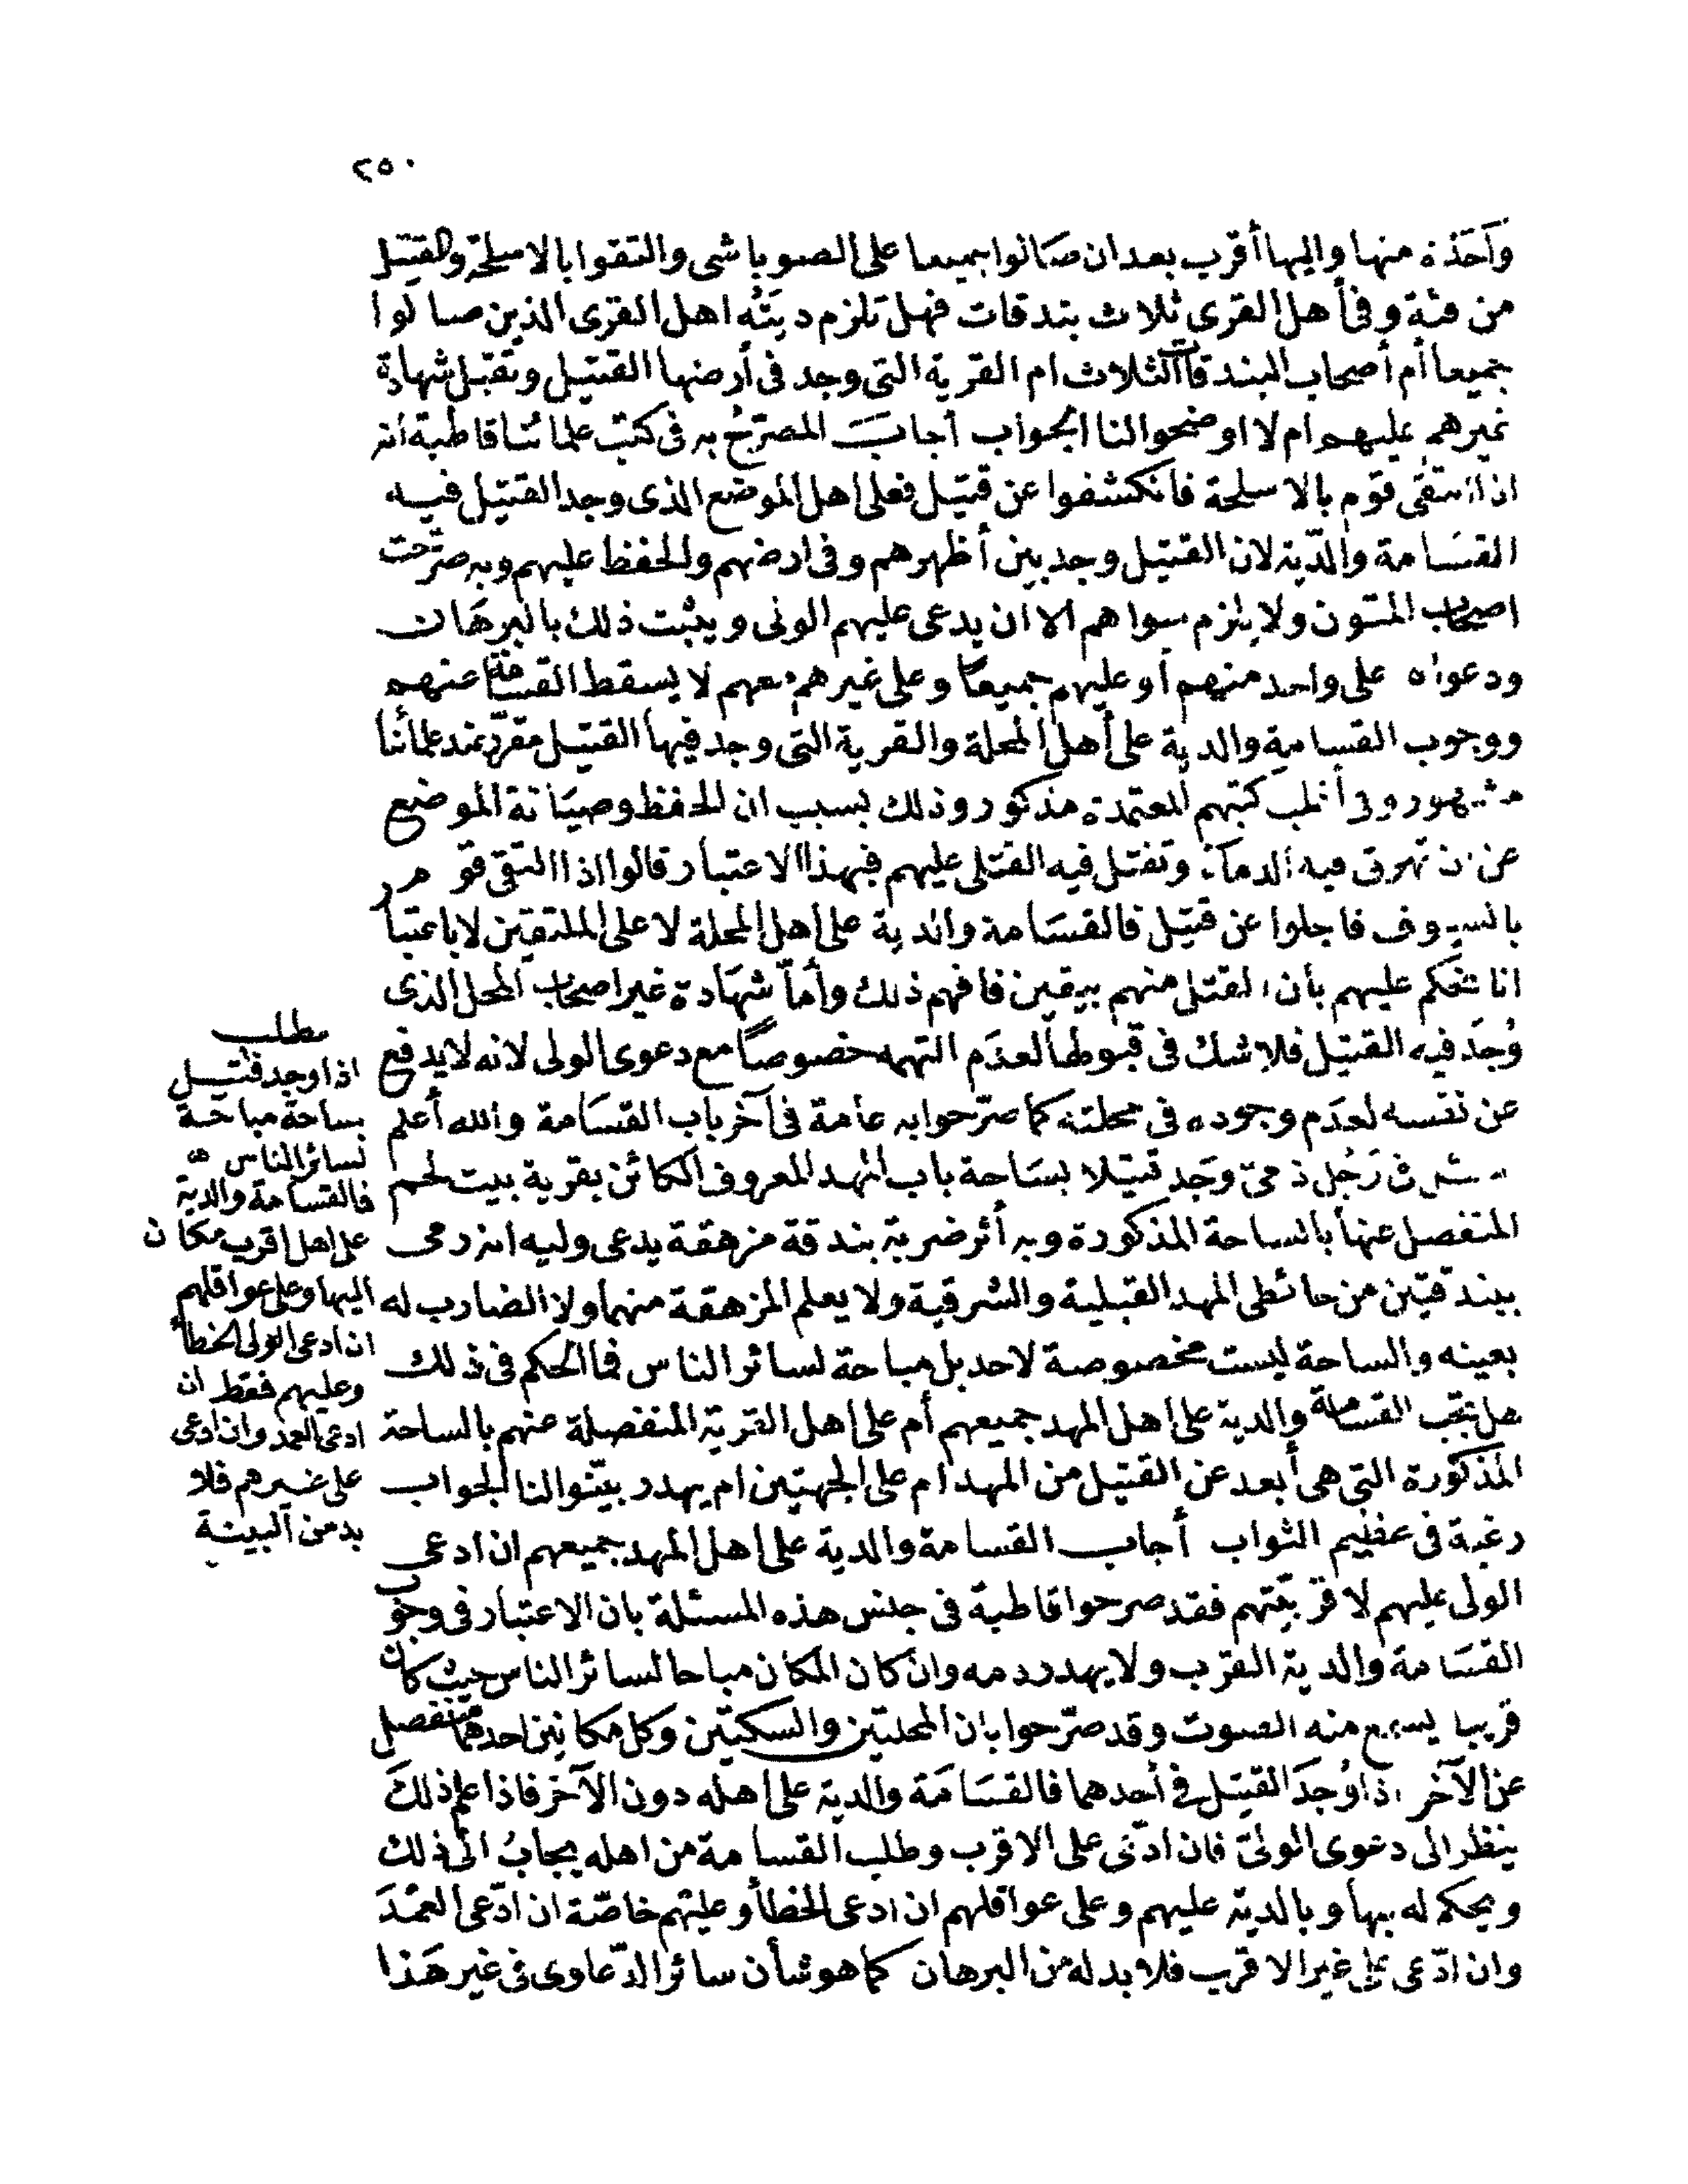 ٢٥٠
واحدة منها واليها أقرب بعد ان صالوا جميعا على الصوباشى والتقوا بالاسلحة والقتيل
من فئة وفى أهل القرى ثلاث بندقات فهل تلزم ديته اهل القرى الذين صالوا
جميعا أم أصحاب البندقات الثلاث ام القرية التى وجد فى أرضها القتيل وتقبل شهادة
غيرهم عليهم ام لا اوضحوا لنا الجواب أجاب المصرّح به فى كتب علمائنا قاطبة انه
اذا التقى قوم بالاسلحة فانكشفوا عن قتيل فعلى اهل الموضع الذى وجد القتيل فيه
القسامة والدّية لان القتيل وجد بين أظهرهم وفى ارضهم والحفظ عليهم وبه صرّحت
اصحاب المتون ولا يلزم سواهم الا ان يدعى عليهم الولى ويثبت ذلك بالبرهان
ودعواه على واحد منهم أو عليهم جميعا وعلى غيرهم معهم لا يسقط القسامة عنهم
ووجوب القسامة والدية على أهل المحلة والقرية التى وجد فيها القتيل مقرّ عند علمائنا
مشهور وفى أغلب كتبهم المعتمدة مذكور وذلك بسبب ان الحفظ وصيانة الموضع
عن ان تهرق فيه الدماء وتقتل فيه القتلى عليهم فبهذا الاعتبار قالوا اذا التقى قوم
بالسيوف فاجلوا عن قتيل فالقسامة والدية على اهل المحلة لا على الملتقين لا باعتبار
انا نحكم عليهم بأن القتل منهم بيقين فافهم ذلك وأمّا شهادة غير اصحاب المحل الذى
وُجدَ فيه القتيل فلا شك فى قبولها لعدم التهمه خصوصاً مع دعوى الولى لانه لا يدفع
عن نفسه لعدم وجوده فى محلته كما صرّحوا به عامة فى آخر باب القسامة والله أعلم
سئل فى رَجُل ذمىّ وجد قتيلا بساحة باب المهد المعروف الكائن بقرية بيت لحم
المنفصل عنها بالساحة المذكورة وبه أثر ضربة بندقة مزهقة يدعى وليه انه رمى
ببندقتين من حائطى المهد القبلية والشرقية ولا يعلم المزهقة منهما ولا الضارب له
بعينه والساحة ليست مخصوصة لاحد بل مباحة لسائر الناس فما الحكم فى ذلك
هل تجب القسامة والدية على اهل المهد جميعهم أم على اهل القرية المنفصلة عنهم بالساحة
المذكورة التى هى أبعد عن القتيل من المهد ام على الجهتين ام يهدر بيّنوا لنا الجواب
رغبة فى عظيم الثواب أجاب القسامة والدية على اهل المهد جميعهم ان ادعى
الولى عليهم لا قريتهم فقد صرحوا قاطبة فى جنس هذه المسئلة بان الاعتبار فى وجوب
القسامة والدية القرب ولا يهدر دمه وان كان المكان مباحا لسائر الناس حيث كان
قريبا يسمع منه الصوت وقد صرّحوا بان المحلتين والسكتين وكل مكانين احدهما منفصل
عن الآخر اذا وُجدَ القتيل فى أحدهما فالقسامة والدية على اهله دون الآخر فاذا علم ذلك
ينظر الى دعوى الولىّ فان ادّعى على الاقرب وطلب القسامة من اهله يجابُ الى ذلك
ويحكم له بها وبالدية عليهم وعلى عواقلهم ان ادعى الخطأ وعليهم خاصّة ان ادّعى العمْدَ
وان ادّعى على غير الاقرب فلا بد له من البرهان كما هو شأن سائر الدّعاوى فى غير هَذا
مطلب
اذا وجد قتيل
بساحة مباحة
لسائر الناس
فالقسامة والدية
على اهل اقرب مكان
اليها وعلى عواقلهم
ان ادعى الولى الخطأ
وعليهم فقط ان
ادعى العمد وان ادعى
على غيرهم فلا
بد من البينة